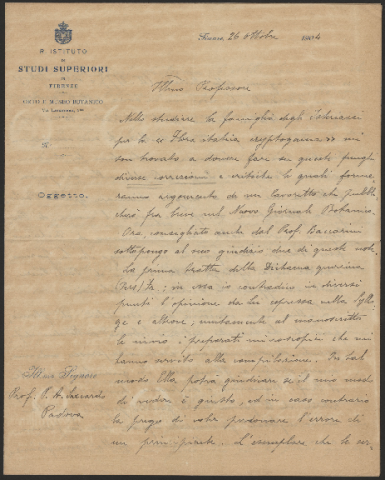 R. ISTITUTO
DI
STUDI SUPERIORI
IN
FIRENZE
ORTO E MUSEO BOTANICO
N.
Oggetto.
Firenze, 26 ottobre 1904
Illmo Professore
Nello studiare la famiglia degli
per la "Flora italica cryptogama" mi
son trovato a dover fare su questi funghi
diverse correzioni e critiche le quali
ranno argomento di un lavoretto che pubbli
cherò fra breve nel Nuovo Giornale Botanico.
Ora consigliato anche dal Prof. Baccarini
sottopongo al suo giudizio due di queste note.
La prima tratta della Dichaena quercina
Pers/Fr.; in essa io contraddico in diversi
punti l'opinione da Lei espressa nella Syllo
ge e altrove; unitamente al manoscritto
le invio i preparati microscopici che mi
hanno servito alla compilazione. In tal
modo Ella potrà giudicare se il mio modo
di vedere è giusto, ed in caso contrario
la prego di voler perdonare l'errore di
un principiante. L'esemplare che le ser-
Illmo Signore
Prof. P. A. Saccardo
Padova